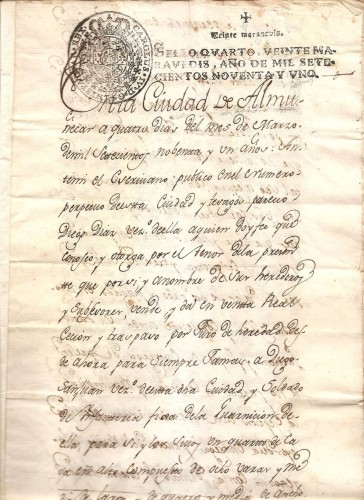 Veinte maravedis.
SELLO QVARTO, VEINTE MA-
RAVEDIS, AÑO DE MIL SETE-
CIENTOS NOVENTA Y VNO.
En la Ciudad de Almu
ñecar a quatro dias del mes de Marzo
de mil setecientos nobenta y un años: An-
temi el Escrivano publico en el Numero
perpetuo de esta Ciudad y testigos parecio
Diego Diaz vez.º de ella a quien doy fee que
conosco, y otorga por el tenor de la presen
te que por si y a nombre de sus herederos
y subcesores, vende y da en venta Real
cecion y traspaso por Juro de heredad des
de ahora para siempre Jamas a Diego
vez.º de esta dha Ciudad y Soldado
de Infanteria fixa de la Guarnicion de
ella, para si y los suyos un quarto de ca
sa en alto compuesto de ocho varas y me
dia de largo quatro y media de ancho